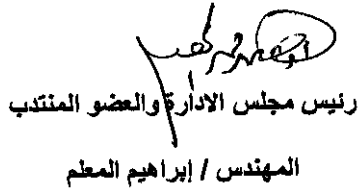 رئيس مجلس الادارة والعضو المنتدب
المهندس / إبراهيم المعلم